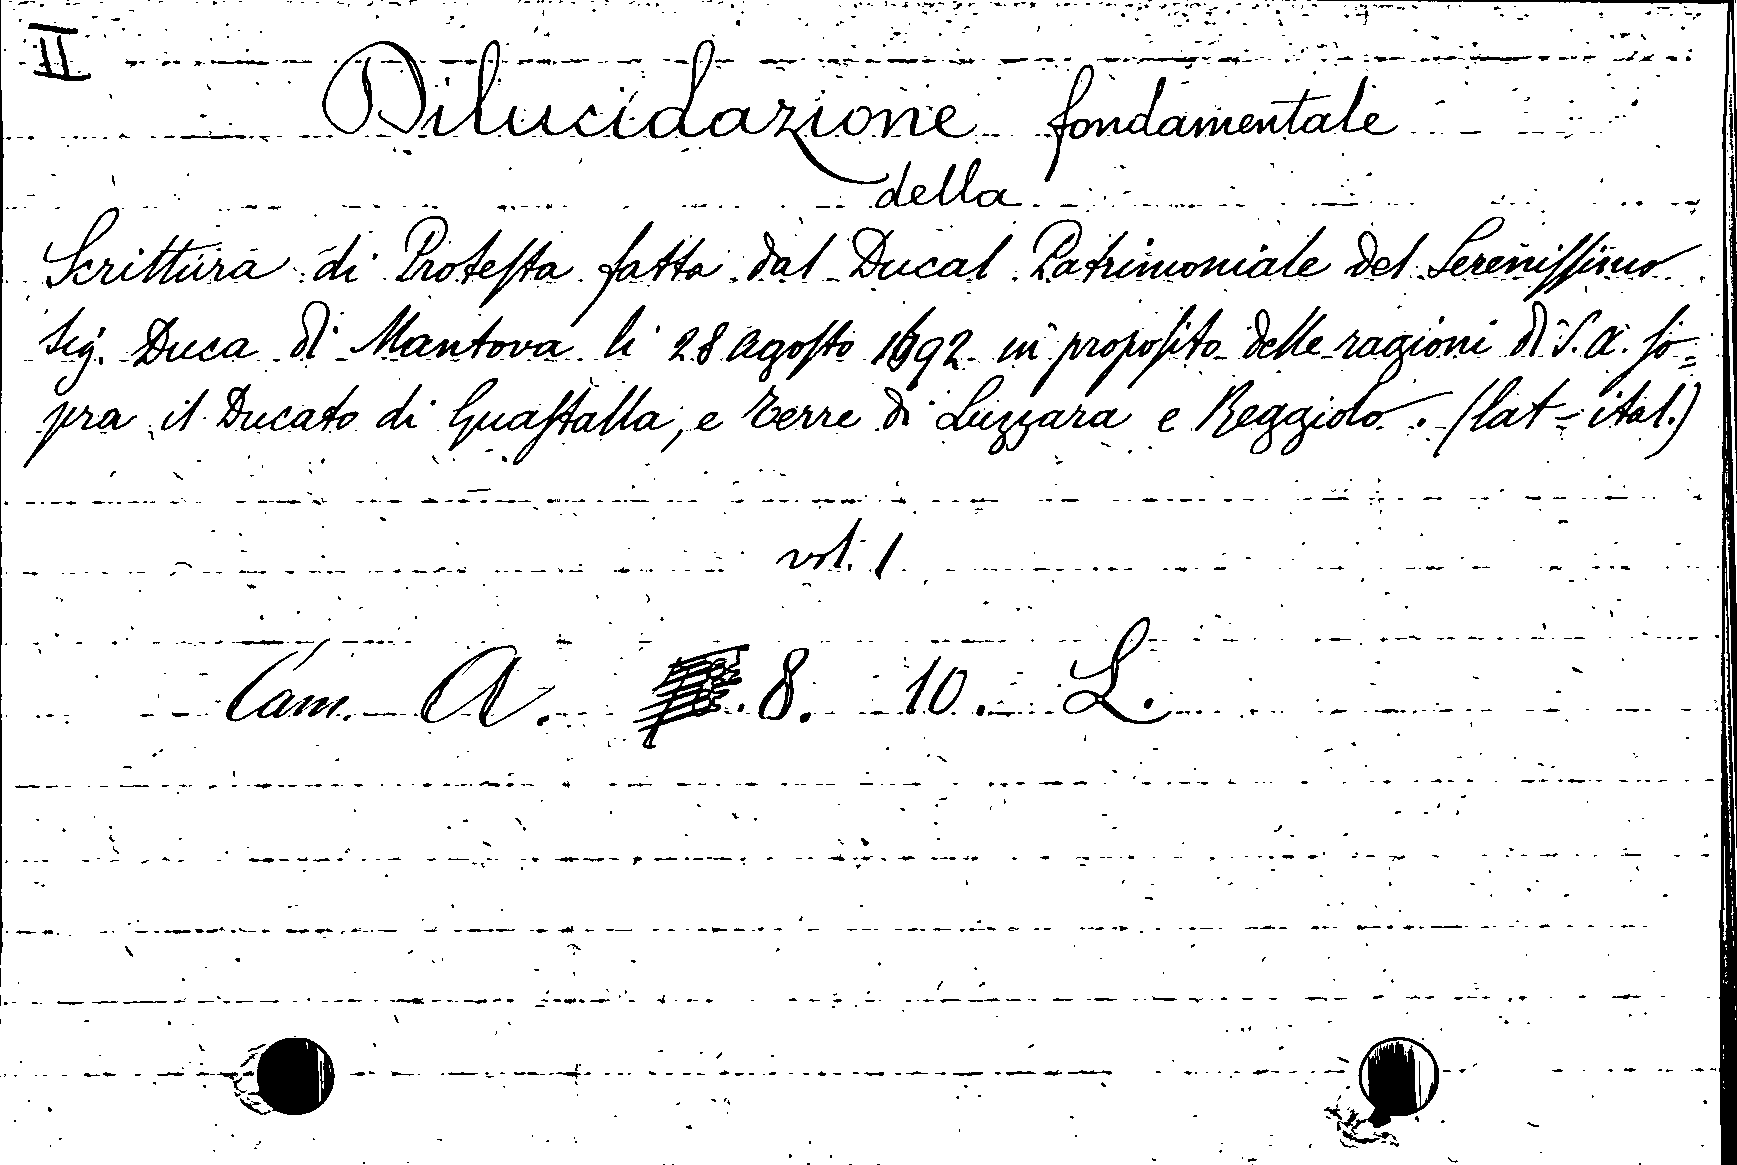 II
Dilucidazione fondamentale
della
Scrittura di Protesta fatta dal Ducal Patrimoniale del Serenissimo
Sig. Duca di Mantova li 28 Agosto 1692 in proposito delle ragioni di S. A. so=
pra il Ducato di Guastalla, e Terre di Luzzara e Reggiolo. (lat - ital.)
vol. 1
Cam. A. 8. 10. L.